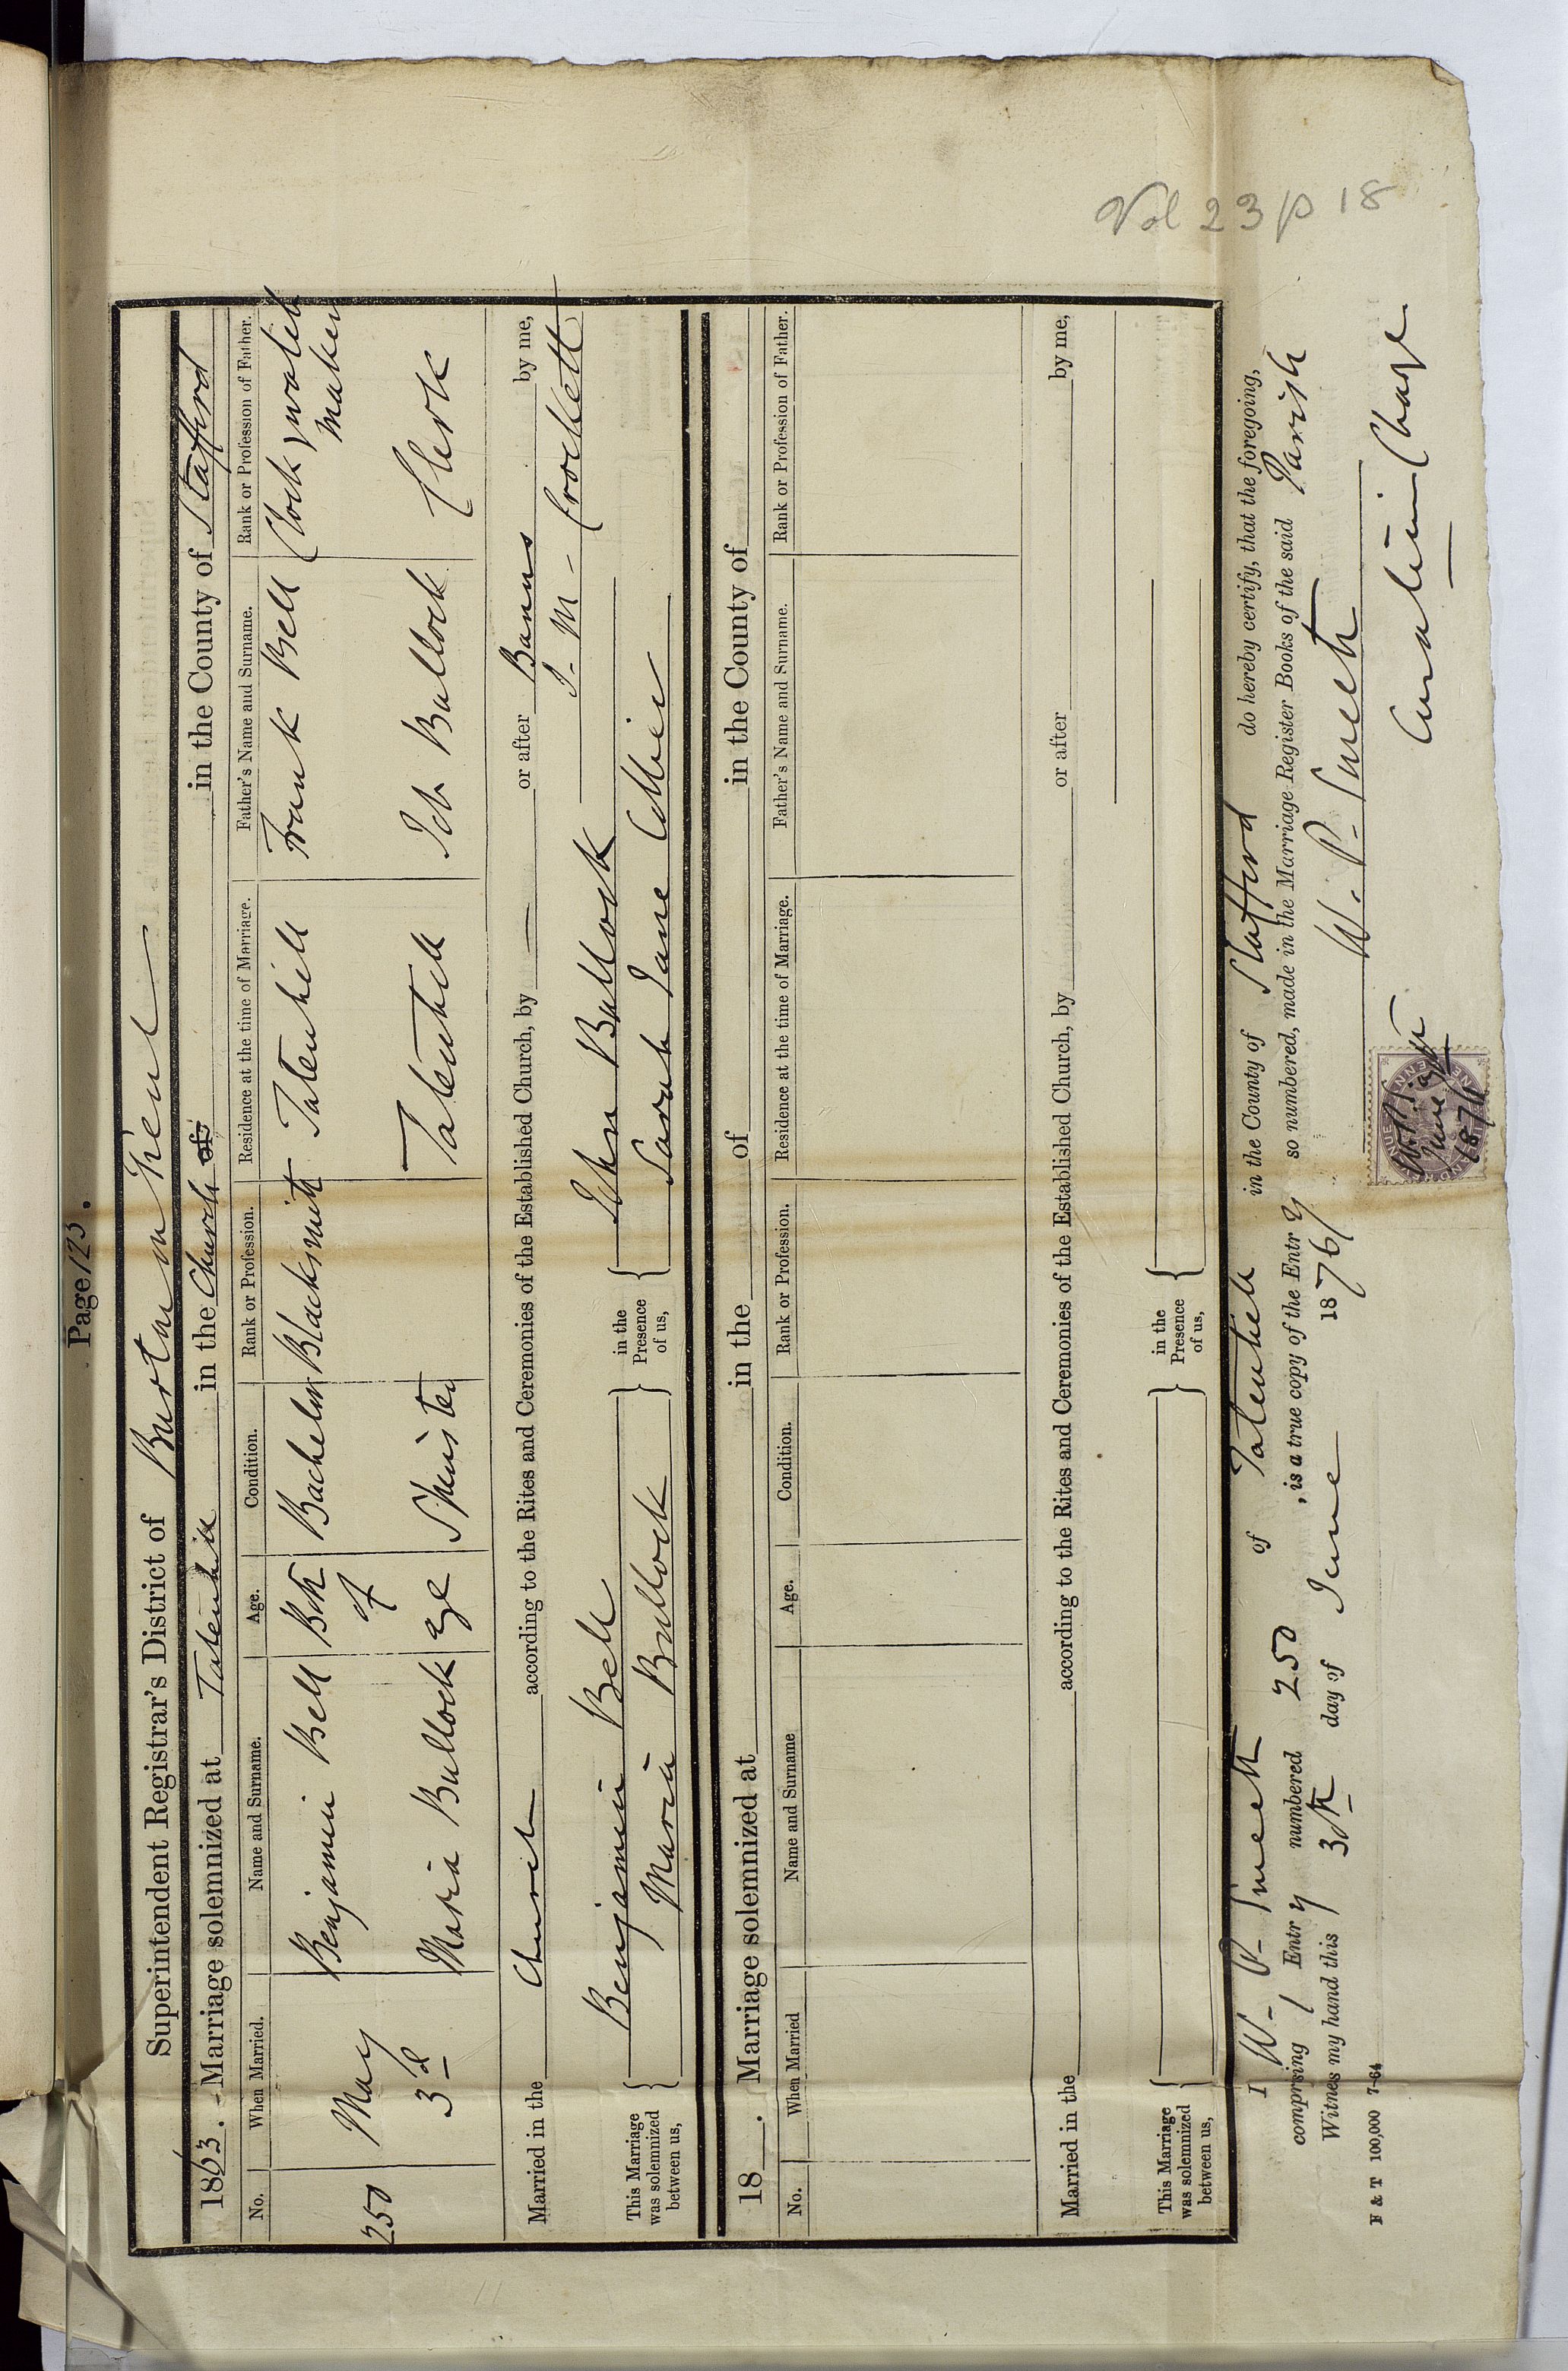 Page 123.
Superintendent Registrar's District of Burton on Trent
1863. Marriage solemnized at Tatenhill in the Church of in the County of Stafford
No. When Married. Name and Surname. Age. Condition. Rank or Profession. Residence at the time of Marriage. Father's Name and Surname. Rank or Profession of Father.
250 May 3d Benjamin Bell Both of age Bachelor Blacksmith Tatenhill Frank Bell Clock & watch Maker
Maria Bullock Spinster Tatenhill Bullock Clerk
Married in the Church according to the Rites and Ceremonies of the Established Church, by — or after Banns by me,
J. M. Crockett
This Marriage was solemnized between us, { Benjamin Bell } in the Presence of us, { John Bullock
Maria Bullock Sarah Jane
18 . Marriage solemnized at in the of in the County of
No. When Married Name and Surname Age. Condition. Rank or Profession. Residence at the time of Marriage. Father's Name and Surname. Rank or Profession of Father.
Married in the according to the Rites and Ceremonies of the Established Church, by or after by me,
This Marriage was solemnized between us, { } in the Presence of us, {
I W. P. of Tatenhill in the County of Stafford do hereby certify, that the foregoing,
comprsing 1 Entry numbered 250 , is a true copy of the Entry so numbered, made in the Marriage Register Books of the said Parish
Witness my hand this 3th day of June 1876 W. P.
Curate in Charge
June
1876
F & T 100,000 7-64
Vol 23 p 18